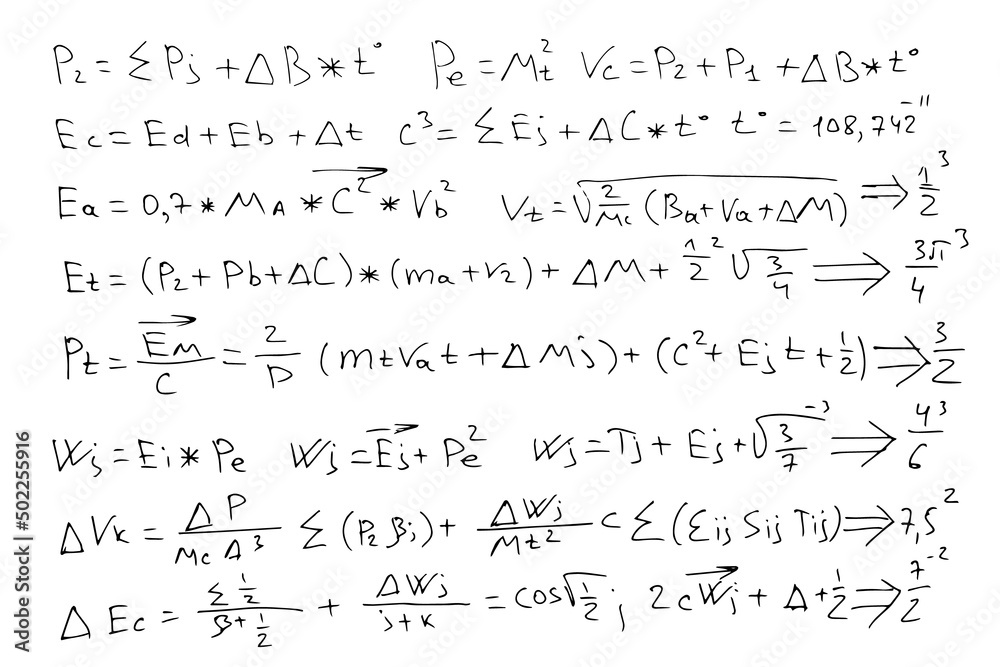 P₂ = ΣPj + ΔB * t° Pe = M²t Vc = P₂ + P₁ + ΔB * t°
Ec = Ed + Eb + Δt c³ = ΣEj + ΔC * t° t° = 108,742⁻¹¹
Ea = 0,7 * MA * C² * Vb² Vt = √2/Mc (Ba + Va + ΔM) ⇒ 1/2³
Et = (P₂ + Pb + ΔC) * (ma + r₂) + ΔM + 1/2² √3/4 ⇒ 3π/4³
Pt = EM/C = 2/D (mtVat + ΔMj) + (C² + Ejt + 1/2) ⇒ 3/2
Wj = Ei * Pe Wj = Ej + Pe² Wj = Tj + Ej + √3/7⁻³ ⇒ 4/6³
ΔVk = ΔP/McA³ Σ(P₂βj) + ΔWj/Mt² c Σ(Σij Sij Tij) ⇒ 7,5²
ΔEc = Σ1/2/β+1/2 + ΔWj/j+k = cos√1/2 j 2cWj + Δ + 1/2 ⇒ 7/2⁻²
Adobe Stock | #502255916
Adobe Stock